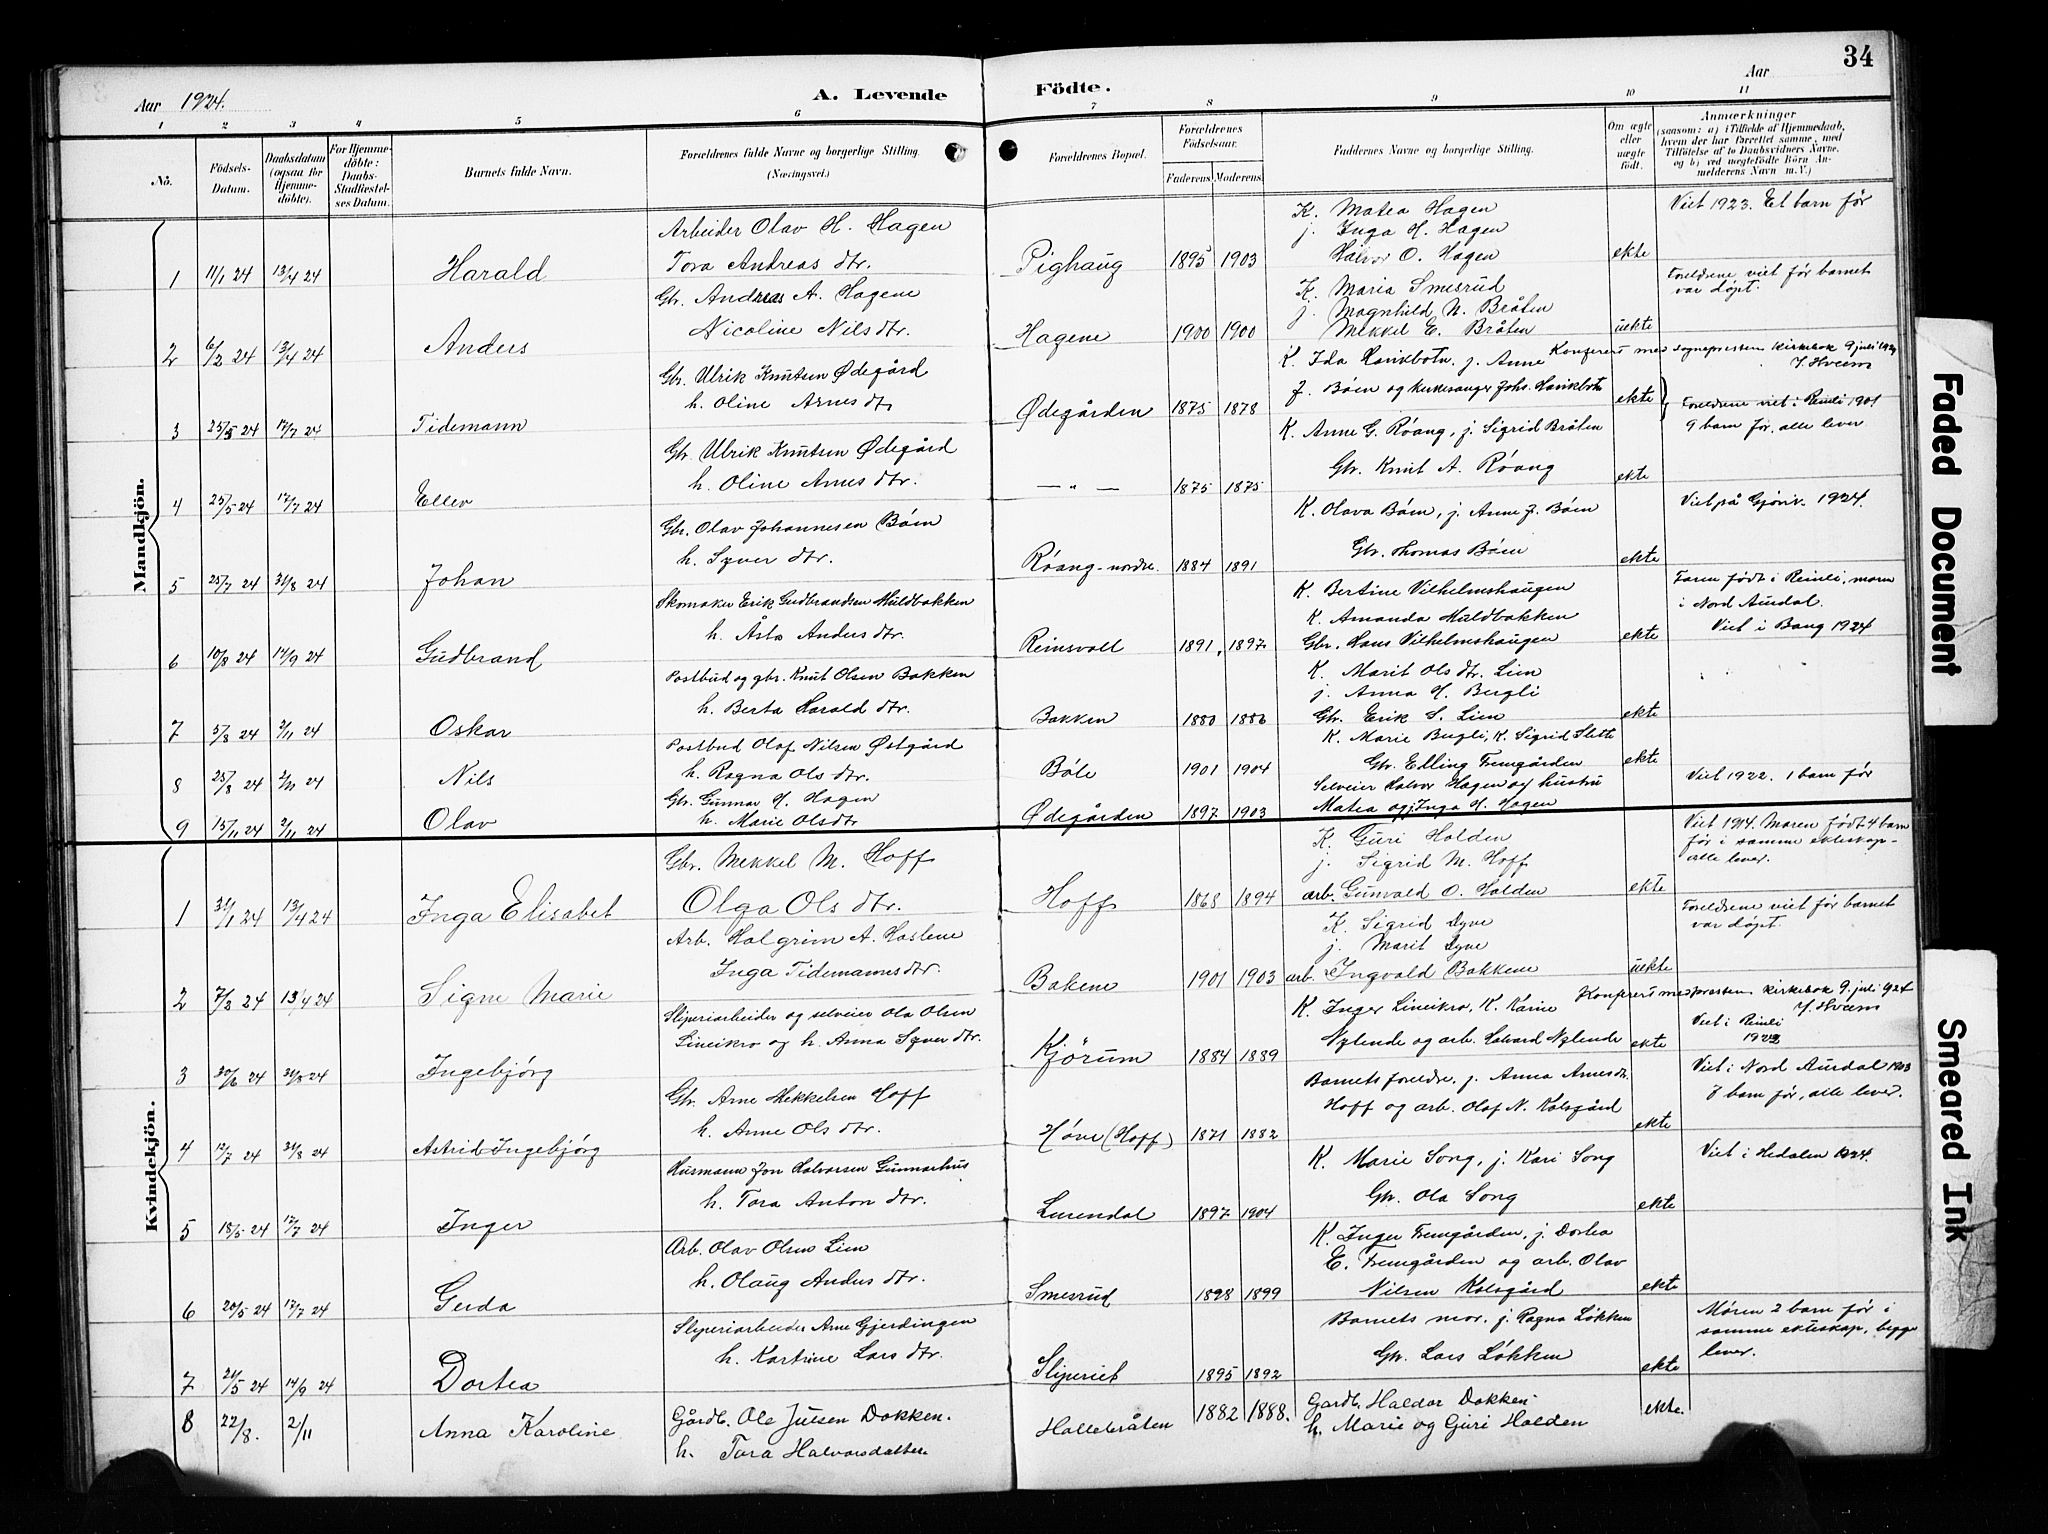 34
Aar 1924.
A. Levende
Födte.
Aar
1 2 3 4 5 6 7 8 9 10 11
Nō.
Födsels-Datum.
Daabsdatum (ogsaa for Hjemmedöbte).
For Hjemmedöbte: Daabs-Stadfæstelses Datum.
Barnets fulde Navn.
Forældrenes fulde Navne og borgerlige Stilling. (Næringsvei.)
Forældrenes Bopæl.
Forældrenes Födselsaar.
Faderens. Moderens.
Faddernes Navne og borgerlige Stilling.
Om ægte eller uægte født.
Anmærkninger (saasom: a) i Tilfælde af Hjemmedaab, hvem der har forrettet samme, med Tilføielse af to Daabsvidners Navne, og b) ved uægtefødte Börn Anmelderens Navn m. V.)
Mandkjön.
Arbeider Olav H. Hagen
K. Matea Hagen
j. Inga H. Hagen
Viet 1923. Et barn før
1 11/1 24 13/4 24 Harald Tora Andreas dtr. Pighaug 1895 1903 Halvor O. Hagen ekte
Gbr. Andreas A. Hagene
K. Maria Smerud
j. Magnhild N. Bråten
Foreldrene viet før barnet
var døpt.
2 6/2 24 13/4 24 Anders Nicoline Nils dtr. Hagene 1900 1900 Mekkel E. Bråten uekte
Konferert med sognepresten kirkebok 9 juli 1924
Gbr. Ulrik Knutsen Ødegård
K. Ida Havikbotn, j. Anne
3 25/5 24 17/7 24 Tidemann h. Oline Arnes dtr Ødegården 1875 1878 J. Bøen og kirkesanger Johs. Havikbotn ekte
Foreldrene viet i Reinli 1901
9 barn før, alle lever
Gbr. Ulrik Knutsen Ødegård
K. Anne G. Røang, j. Sigrid Bråten
4 25/5 24 17/7 24 Ellev h. Oline Arnes dtr. — " — 1875 1875 Gbr. Knut A. Røang ekte
Gbr. Olav Johannesen Bøen
K. Olava Bøen, j. Anne J. Bøen
Viet på Gjøvik 1924.
5 25/7 24 31/8 24 Johan h. Syver dtr. Røang-nordre. 1884 1891 Gbr. Thomas Bøen ekte
Skomaker Erik Gudbrandsen Huldbakken
K. Bertine Vilhelmshaugen
K. Amanda Huldbakken
Faren født i Reinli, moren
i Nord Aurdal.
Viet i Bang 1924
6 10/8 24 14/9 24 Gudbrand h. Åsta Anders dtr. Reinsvoll 1891 1897 Gbr. Hans Vilhelmshaugen ekte
Postbud og gbr. Knut Olsen Bakken
K. Marit Ols dtr. Lien
j. Anna H. Bergli
7 5/8 24 2/11 24 Oskar h. Berta Harald dtr. Bakken 1880 1886 Gbr. Erik S. Lien ekte
Postbud Olaf Nilsen Østgård
K. Marie Bergli, K. Sigrid Slette
8 25/8 24 2/11 24 Nils h. Ragna Ols dtr. Bøle 1901 1904 Gbr. Elling Fremgården ekte
Gbr. Gunnar H. Hagen
Selveier Halvor Hagen og hustru
Viet 1922. 1 barn før
9 15/11 24 2/11 24 Olav h. Marie Olsdtr Ødegården 1897 1903 Matea og j. Inga H. Hagen
Kvindekjön.
Gbr. Mekkel M. Hoff
K. Guri Holden
j. Sigrid M. Hoff
Viet 1914. Moren født 4 barn
før i samme ekteskap-
alle lever.
1 31/1 24 13/4 24 Inga Elisabet Olga Ols dtr. Hoff 1868 1894 arb. Gunvald O. Holden ekte
Arb. Halgrim A. Haslene
K. Sigrid Dyve
j. Marit Dyve
Foreldrene viet før barnet
var døpt.
2 7/2 24 13/4 24 Signe Marie Inga Tidemannsdtr. Bakene 1901 1903 arb. Ingvald Bakkene uekte
Konferert med prestens kirkebok 9. juli 1924
Sliperiarbeider og selveier Ola Olsen
K. Inger Lineikro, K. Karine
Viet i Reinli
3 30/6 24 31/8 24 Ingebjørg Lineikro og h. Anna Syver dtr. Kjørum 1884 1889 Nylende og arb. Halvard Nylende ekte
Gbr. Arne Mekkelsen Hoff
Barnets foreldre, j. Anna Arnesdtr.
Viet i Nord Aurdal 1903
8 barn før, alle lever.
4 17/7 24 31/8 24 Astrid Ingebjørg h. Anne Ols dtr. Høve (Hoff) 1871 1882 Hoff og arb. Olaf N. Kolsgård ekte
Husmann Jon Halvorsen Gunnarhus
K. Marie Song, j. Kari Song
Viet i Hedalen 1924.
5 18/5 24 17/7 24 Inger h. Tora Anton dtr. Lurendal 1897 1904 Gbr. Ola Song ekte
Arb. Olav Olsen Lien
K. Inger Fremgården, j. Dortea
E. Fremgården og arb. Olav
6 20/5 24 17/7 24 Gerda h. Olaug Anders dtr. Smerud 1898 1899 Nilsen Kolsgård ekte
Sliperiarbeider Arne Gjerdingen
Barnets mor, j. Ragna Løkken
Moren 2 barn før i
samme ekteskap, begge
lever.
7 21/5 24 14/9 24 Dortea h. Kartrine Lars dtr. Sliperiet 1895 1892 Gbr. Lars Løkken ekte
8 22/8. 2/11 Anna Karoline Gårdb. Ole Julsen Dokken. Hallebråten 1882 1888. Gardb. Haldor Dokken ekte.
h. Tora Halvorsdatter
h. Marie og Guri Holden
Faded Document
Smeared Ink